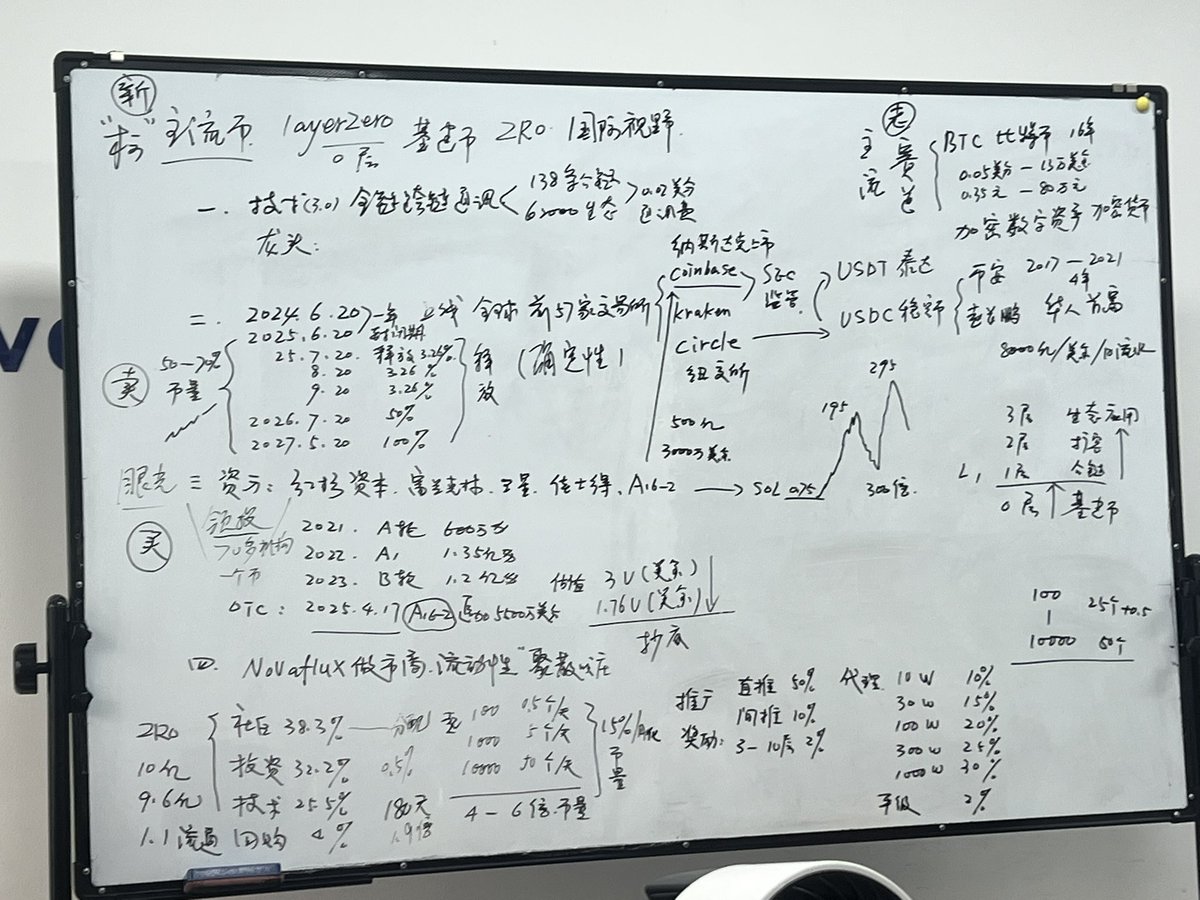 新
主流币 layerZero 基建币 ZRO 国际视野
0层
一、技术(3.0) 全链跨链通讯 138条公链 0.02美分
62000生态 通讯费
龙头:
二、2024.6.20 一年 上线 全球前57家交易所
2025.6.20 封闭期
卖
50—70%
币量
25.7.20. 释放3.26%
8.20 3.26%
9.20 3.26%
2026.7.20 50%
2027.5.20 100%
释放
(确定性)
纳斯达克上市
coinbase
kraken
circle
纽交所
SEC
监管
500亿
3000万美金
老
主流赛道
BTC 比特币 16年
0.05美分—13万美金
0.35元—80万元
加密数字资产 加密货币
USDT 泰达
USDC 稳定币
币安 2017—2021
4年
赵长鹏 华人首富
8000亿/美金/日流水
195
295
300倍
3层 生态应用
2层 扩容
L1 1层 公链
0层 基建币
眼光
三 资方: 红杉资本. 富兰克林. 三星. 佳士得. A16-2 → SOL 0.75
买
领投
70多机构
一个币
2021. A轮 600万
2022. A1 1.35亿
2023. B轮 1.2亿
估值 3U(美金)
1.76U(美金)
抄底
OTC: 2025.4.17 A16-2 追加5500万美金
四. Novaflux做市商.流动性"聚散
100
1
10000
25个+0.5
50个
ZRO
10亿
9.6亿
1.1流通
社区 38.3%
投资 32.2%
技术 25.5%
回购 4%
0.5%
180天
100 0.5个/天
1000 5个/天
10000 50个/天
15%/月化
币量
4—6倍币量
推广
奖励:
直推 50%
间推 10%
3—10层 2%
代理 10W 10%
30W 15%
100W 20%
300W 25%
1000W 30%
平级 2%